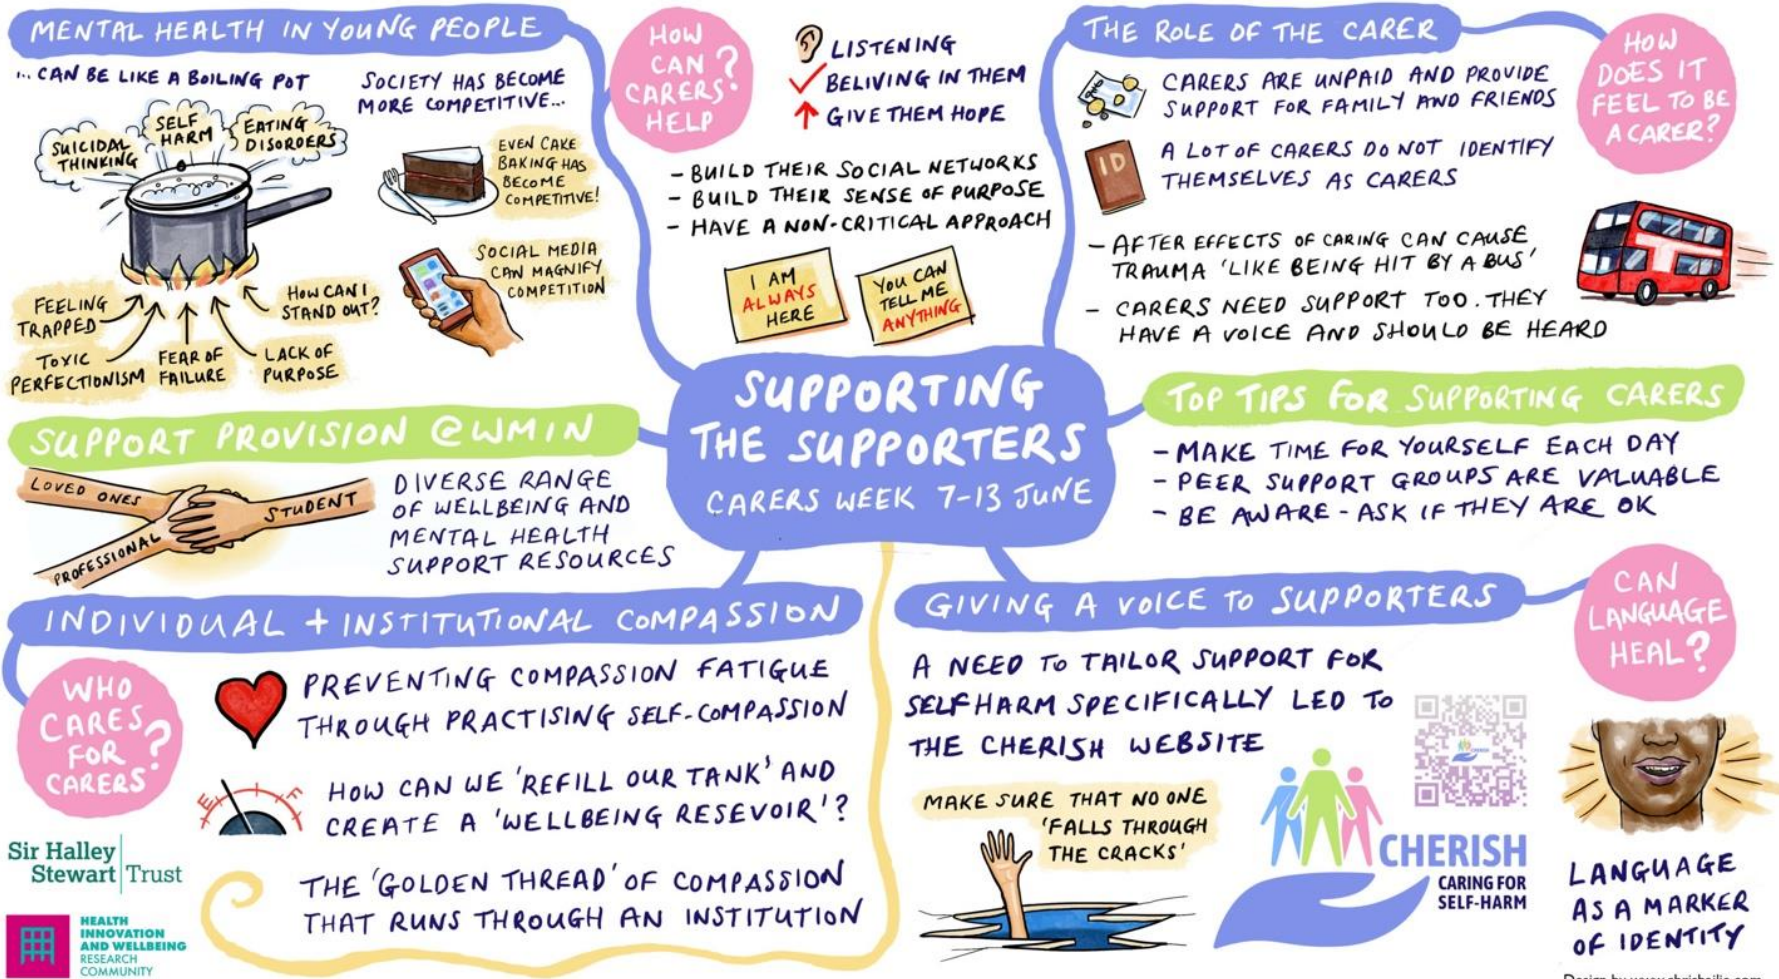 MENTAL HEALTH IN YOUNG PEOPLE
... CAN BE LIKE A BOILING POT
SUICIDAL
THINKING
SELF
HARM
EATING
DISORDERS
FEELING
TRAPPED
TOXIC
PERFECTIONISM
FEAR OF
FAILURE
LACK OF
PURPOSE
HOW CAN I
STAND OUT?
SOCIETY HAS BECOME
MORE COMPETITIVE...
EVEN CAKE
BAKING HAS
BECOME
COMPETITIVE!
SOCIAL MEDIA
CAN MAGNIFY
COMPETITION
HOW
CAN
CARERS
HELP
?
LISTENING
BELIVING IN THEM
GIVE THEM HOPE
- BUILD THEIR SOCIAL NETWORKS
- BUILD THEIR SENSE OF PURPOSE
- HAVE A NON-CRITICAL APPROACH
I AM
ALWAYS
HERE
YOU CAN
TELL ME
ANYTHING
THE ROLE OF THE CARER
HOW
DOES IT
FEEL TO BE
A CARER?
CARERS ARE UNPAID AND PROVIDE
SUPPORT FOR FAMILY AND FRIENDS
ID
A LOT OF CARERS DO NOT IDENTIFY
THEMSELVES AS CARERS
- AFTER EFFECTS OF CARING CAN CAUSE
TRAUMA 'LIKE BEING HIT BY A BUS'
- CARERS NEED SUPPORT TOO. THEY
HAVE A VOICE AND SHOULD BE HEARD
SUPPORTING
THE SUPPORTERS
CARERS WEEK 7-13 JUNE
SUPPORT PROVISION @WMIN
LOVED ONES
STUDENT
PROFESSIONAL
DIVERSE RANGE
OF WELLBEING AND
MENTAL HEALTH
SUPPORT RESOURCES
TOP TIPS FOR SUPPORTING CARERS
- MAKE TIME FOR YOURSELF EACH DAY
- PEER SUPPORT GROUPS ARE VALUABLE
- BE AWARE - ASK IF THEY ARE OK
INDIVIDUAL + INSTITUTIONAL COMPASSION
WHO
CARES
FOR
CARERS
?
PREVENTING COMPASSION FATIGUE
THROUGH PRACTISING SELF-COMPASSION
E F
HOW CAN WE 'REFILL OUR TANK' AND
CREATE A 'WELLBEING RESEVOIR'?
THE 'GOLDEN THREAD' OF COMPASSION
THAT RUNS THROUGH AN INSTITUTION
Sir Halley
Stewart Trust
HEALTH
INNOVATION
AND WELLBEING
RESEARCH
COMMUNITY
GIVING A VOICE TO SUPPORTERS
A NEED TO TAILOR SUPPORT FOR
SELF HARM SPECIFICALLY LED TO
THE CHERISH WEBSITE
MAKE SURE THAT NO ONE
'FALLS THROUGH
THE CRACKS'
CHERISH
CARING FOR
SELF-HARM
CAN
LANGUAGE
HEAL?
LANGUAGE
AS A MARKER
OF IDENTITY